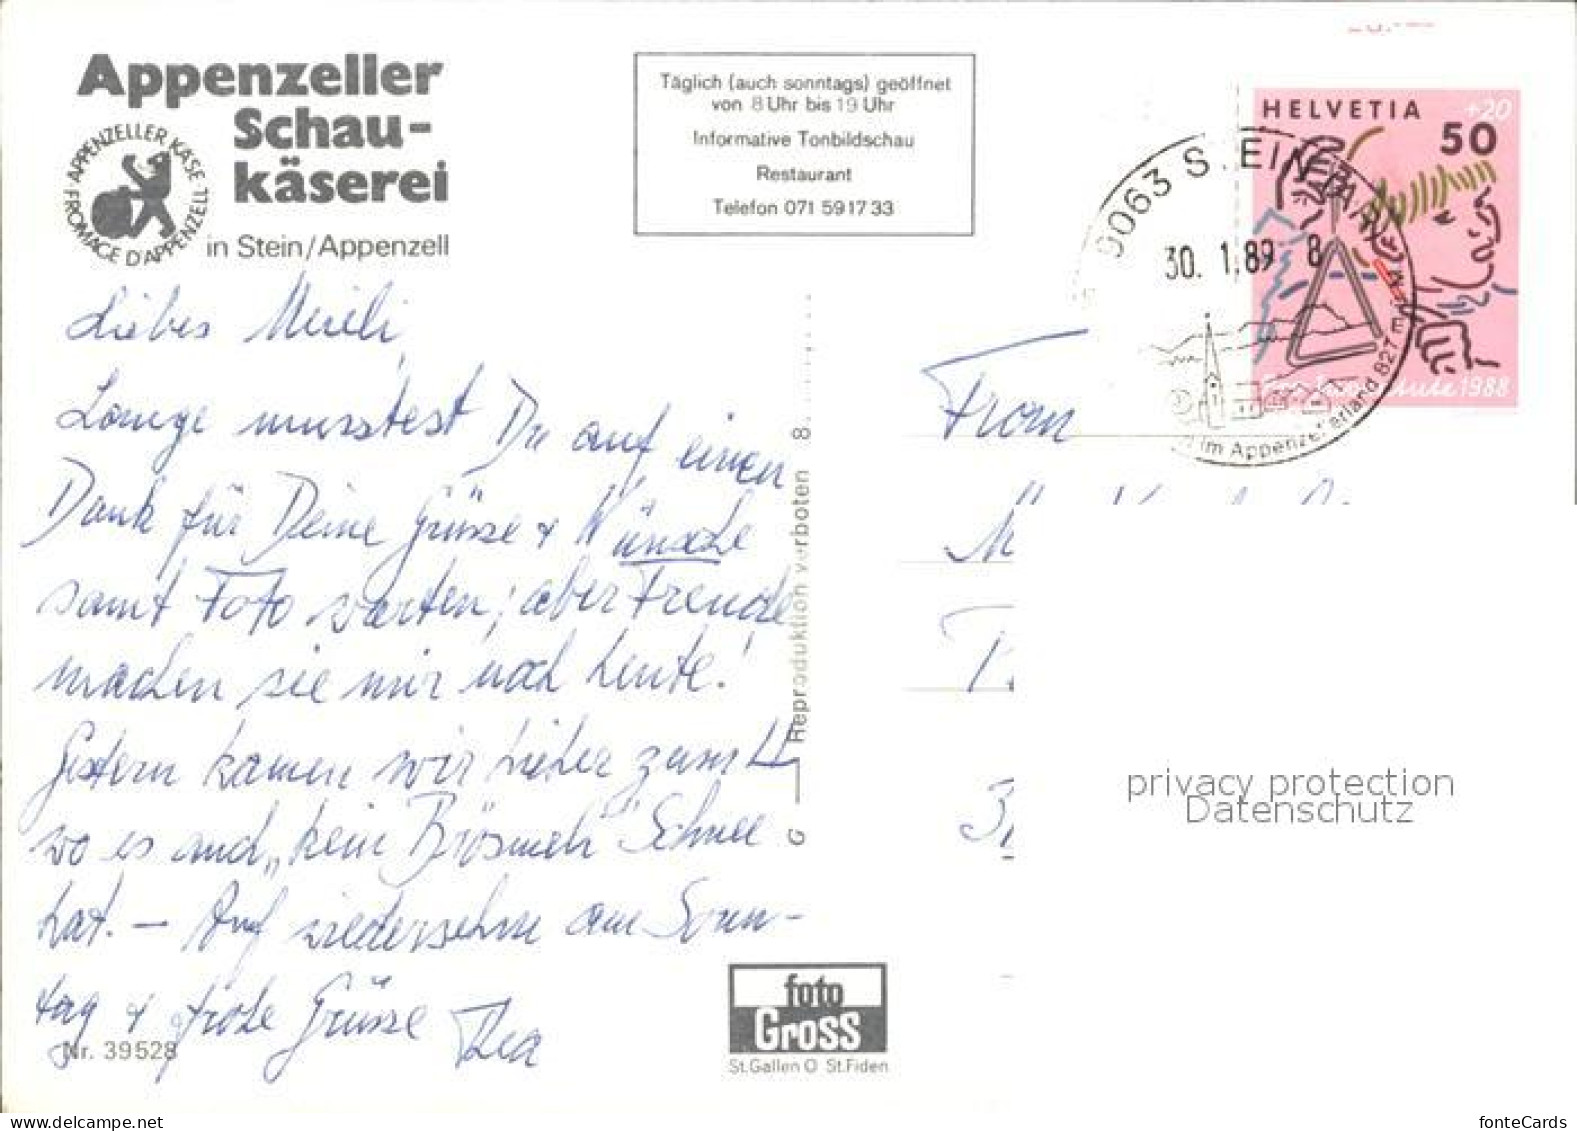 Appenzeller
Schau-
käserei
APPENZELLER KÄSE · FROMAGE D'APPENZELL ·
in Stein/Appenzell
Täglich (auch sonntags) geöffnet
von 8 Uhr bis 19 Uhr
Informative Tonbildschau
Restaurant
Telefon 071 59 17 33
HELVETIA +20
50
1988
30. 1.89 8
im Appenzellerland 827 m
Liebes Meieli,
Lange musstest Du auf einen
Dank für Deine Grüsse & Wünsche
samt Foto warten; aber Freude
machen sie mir noch heute!
Gestern kamen wir hieher zum
wo es auch „kein Brösmeli" Schnee
hat. – Auf wiedersehn am Sonn-
tag & frohe Grüsse Thea
Nr. 39528
G — Reproduktion verboten 8.
foto
Gross
St.Gallen O St.Fiden
From
privacy protection
Datenschutz
fonteCards